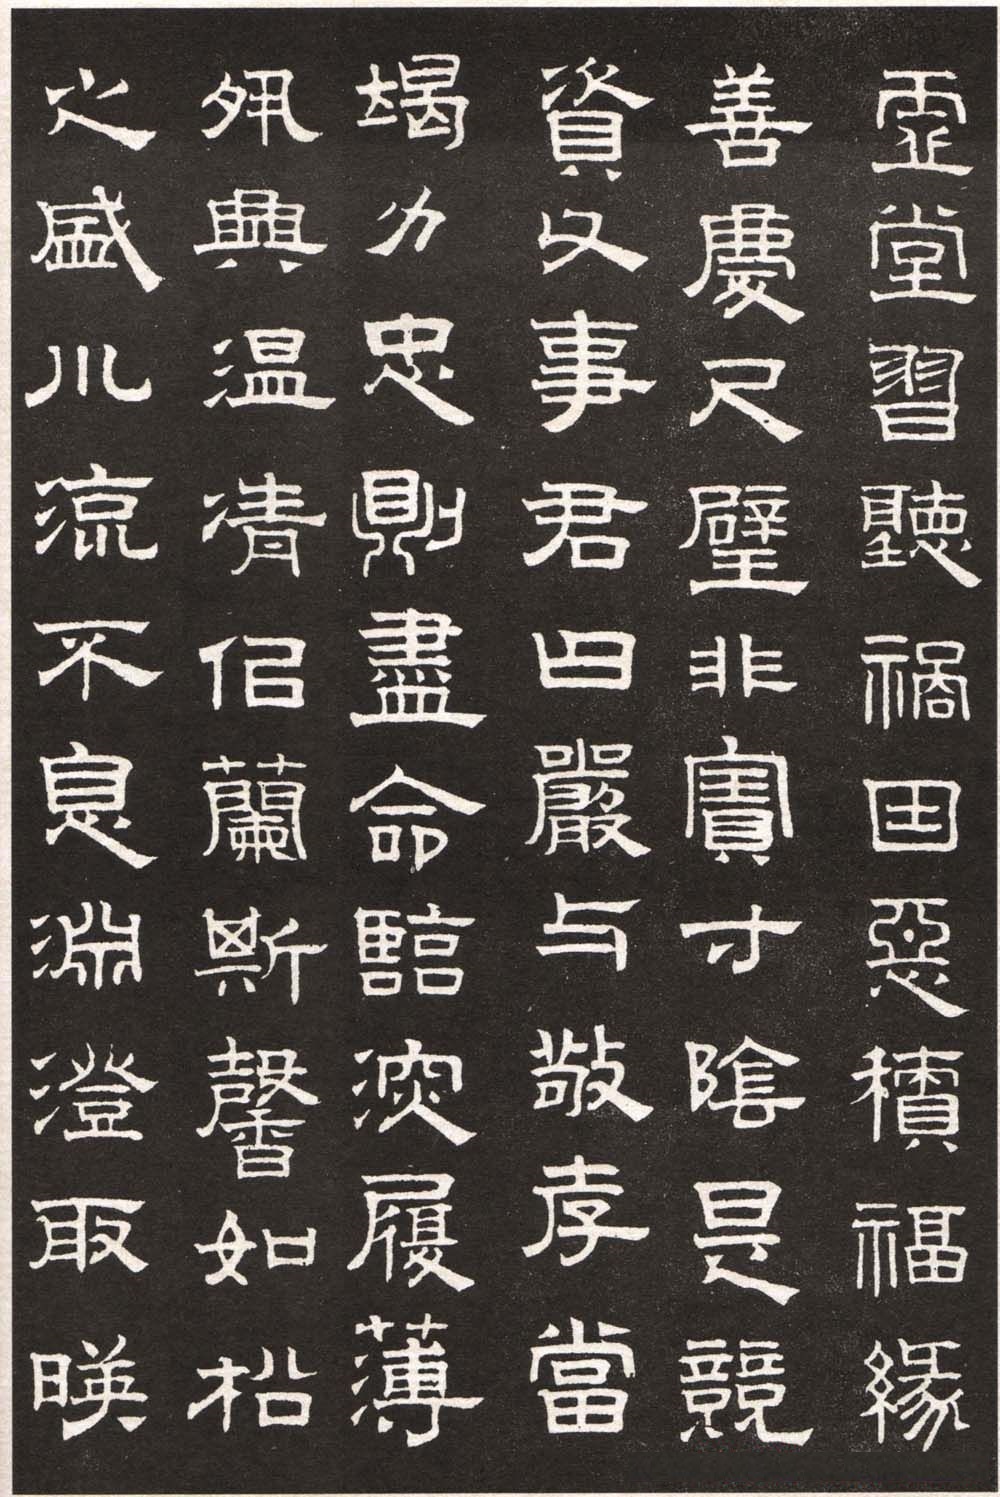 虛堂習聽禍因惡積福緣
善慶尺璧非寶寸陰是競
資父事君曰嚴与敬孝當
竭力忠則盡命臨深履薄
夙興温凊侣蘭斯馨如松
之盛川流不息淵澄取暎